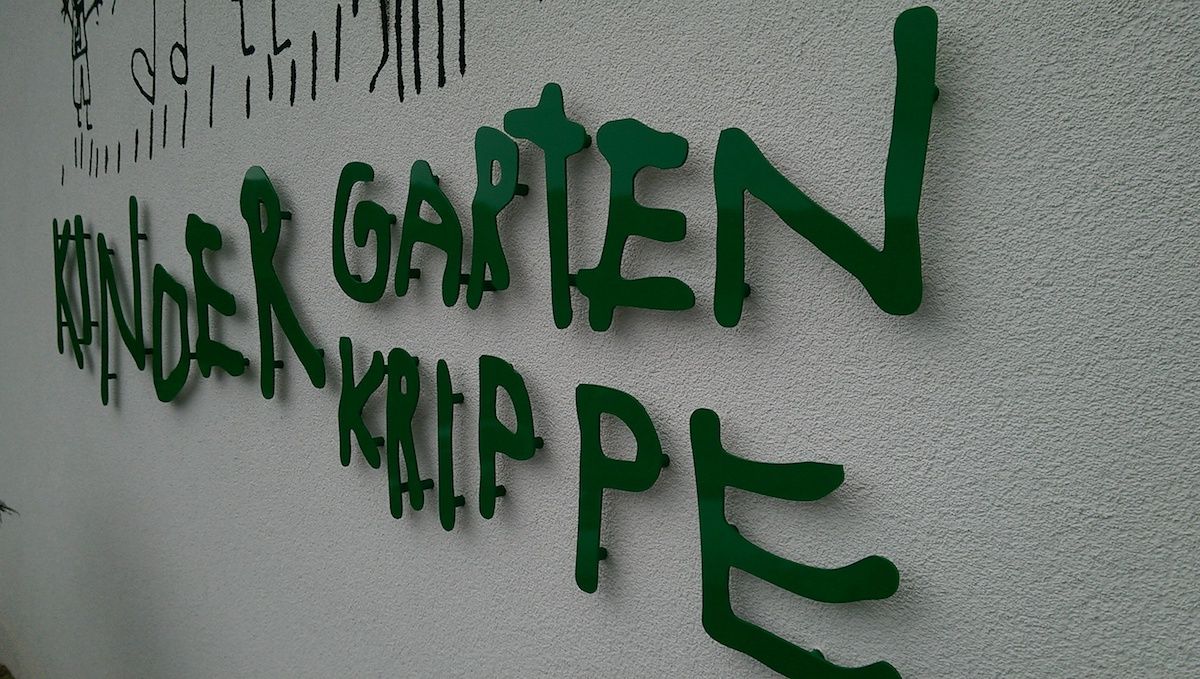 KINDERGARTEN
KRIPPE